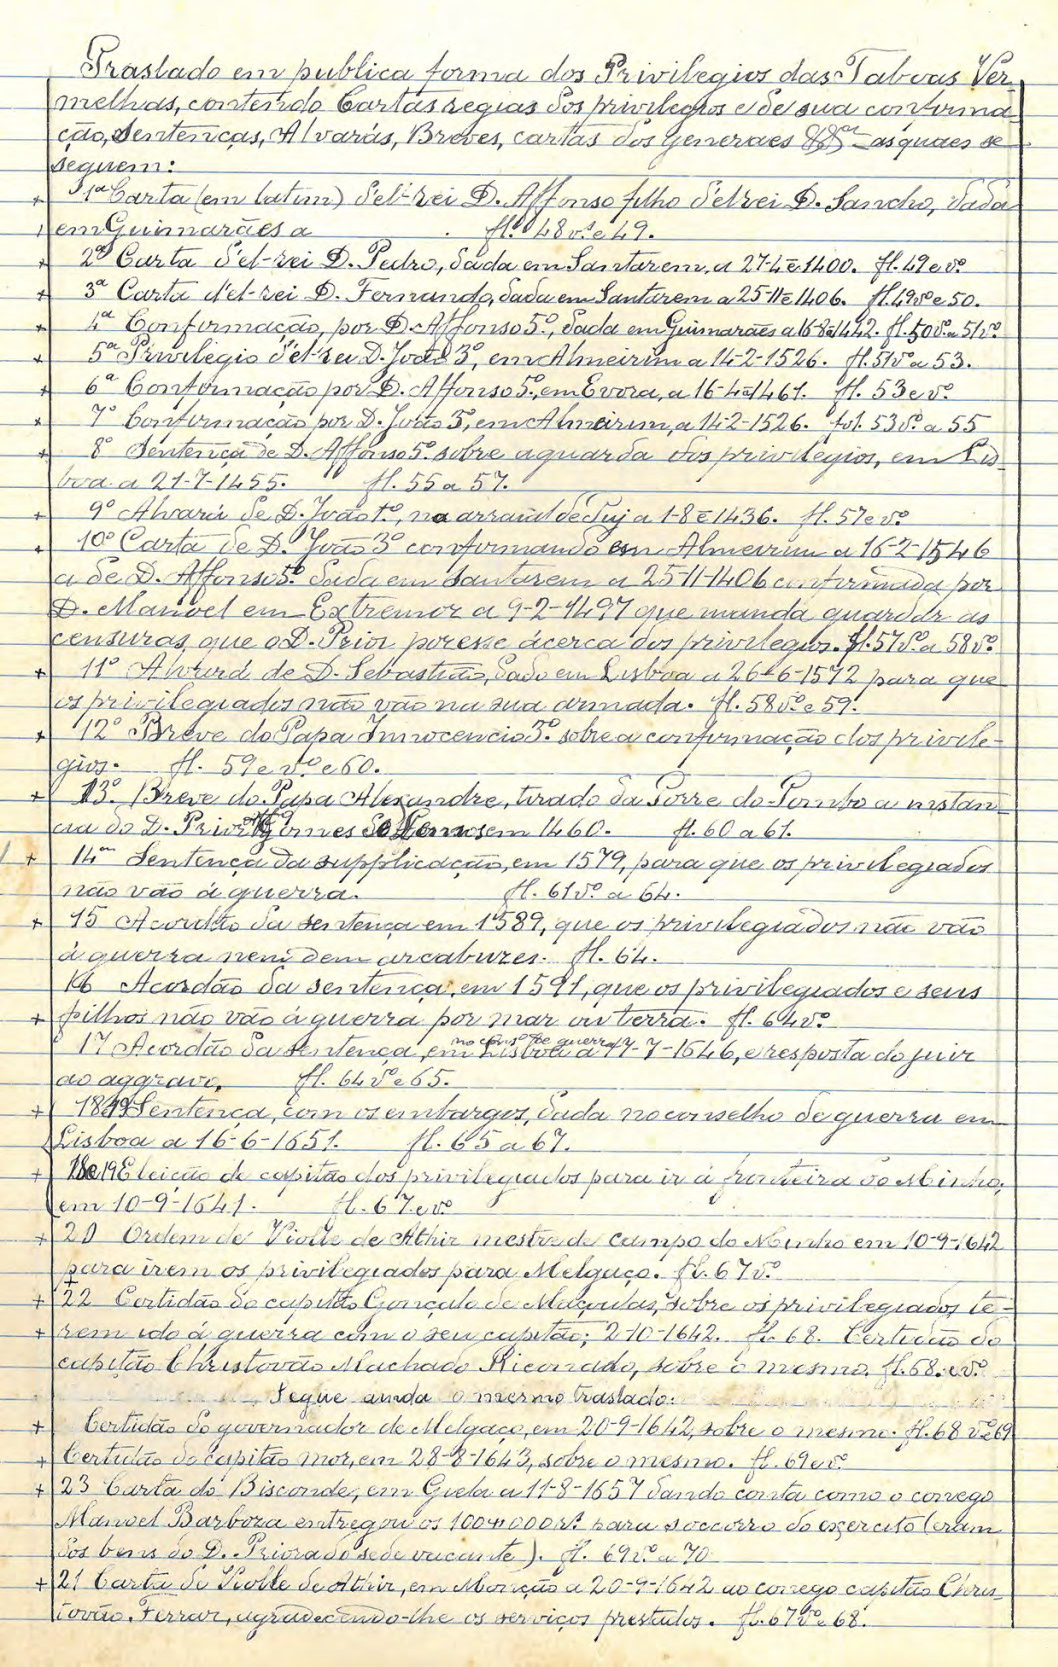 Traslado em publica forma dos Privilegios das Taboas Ver
melhas, contendo Cartas regias dos privilegios e de sua confirma
ção, Sentenças, Alvarás, Breves, cartas dos generaes as quaes se
seguem:
+ 1ª Carta (em latim) d'el-rei D. Affonso filho d'el rei D. Sancho, dada
em Guimarães a fl. 48 vº e 49.
+ 2ª Carta d'el-rei D. Pedro, dada em Santarem, a 27-4-1400. fl. 49 e vº
+ 3ª Carta d'el-rei D. Fernando, dada em Santarem a 25-11-1406. fl. 49 vº e 50.
+ 4ª Confirmação, por D. Affonso 5º, dada em Guimarães a 16-8-1442. fl. 50 vº a 51 vº
+ 5ª Privilegio d'el-rei D. João 3º, em Almeirim a 14-2-1526. fl. 51 vº a 53.
+ 6ª Confirmação por D. Affonso 5º, em Evora, a 16-4-1461. fl. 53 e vº
+ 7º Confirmação por D. João 3º, em Almeirim, a 14-2-1526. fol. 53 vº a 55
+ 8º Sentença de D. Affonso 5º sobre a guarda dos privilegios, em Lis-
boa a 21-7-1455. fl. 55 a 57.
+ 9º Alvará de D. João 1º, no arraial de Tuj a 1-8-1436. fl. 57 e vº
+ 10º Carta de D. João 3º confirmando em Almeirim a 16-2-1546
a de D. Affonso 5º dada em Santarem a 25-11-1406 confirmada por
D. Manoel em Extremoz a 9-2-1497 que manda guardar as
censuras, que o D. Prior pozesse ácerca dos privilegios. fl. 57 vº a 58 vº
+ 11º Alvará de D. Sebastião, dado em Lisboa a 26-6-1572 para que
os privilegiados não vão na sua armada. fl. 58 vº e 59.
+ 12º Breve do Papa Innocencio sobre a confirmação dos privile-
gios. fl. 59 e vº e 60.
+ 13º Breve do Papa Alexandre, tirado da Torre do Tombo a instan-
cia do D. Prior Gomes de Lemos em 1460. fl. 60 a 61.
+ 14ª Sentença da supplicação, em 1579, para que os privilegiados
não vão á guerra. fl. 61 vº a 64.
+ 15 Acordão da sentença em 1589, que os privilegiados não vão
á guerra nem dem arcabuzes. fl. 64.
16 Acordão da sentença, em 1591, que os privilegiados e seus
+ filhos não vão á guerra por mar ou terra. fl. 64 vº
no consº de guerra
17 Acordão da sentença, em Lisboa a 17-7-1646, e resposta do juiz
ao aggravo, fl. 64 vº e 65.
+ 18 Sentença, com os embargos, dada no conselho de guerra em
Lisboa a 16-6-1651. fl. 65 a 67.
+ 18 e 19 Eleição de capitão dos privilegiados para ir á fronteira do Minho,
em 10-9-1641. fl. 67 e vº
+ 20 Ordem de Violle de Athir mestre de campo do Minho em 10-9-1642
para irem os privilegiados para Melgaço. fl. 67 vº
+ 22 Certidão do capitão Gonçalo de Macedas, sobre os privilegiados te-
+ rem ido á guerra com o seu capitão; 2-10-1642. fl. 68. Certidão do
capitão Christovão Machado, sobre o mesmo. fl. 68. e vº
Segue ainda o mesmo traslado:
+ Certidão do governador de Melgaço, em 20-9-1642, sobre o mesmo. fl. 68 vº e 69
+ Certidão do capitão mor, em 28-8-1643, sobre o mesmo. fl. 69 e vº
+ 23 Carta do Bisconde, em Giela a 11-8-1657 dando conta como o conego
Manoel Barboza entregou os 100#000 rs. para soccorro do exercito (eram
dos bens do D. Priorado sede vacante). fl. 69 vº a 70
+ 21 Carta de Violle de Athir, em Monção a 20-9-1642 ao conego capitão Chris-
tovão Ferraz, agradecendo-lhe os serviços prestados. fl. 67 vº e 68.